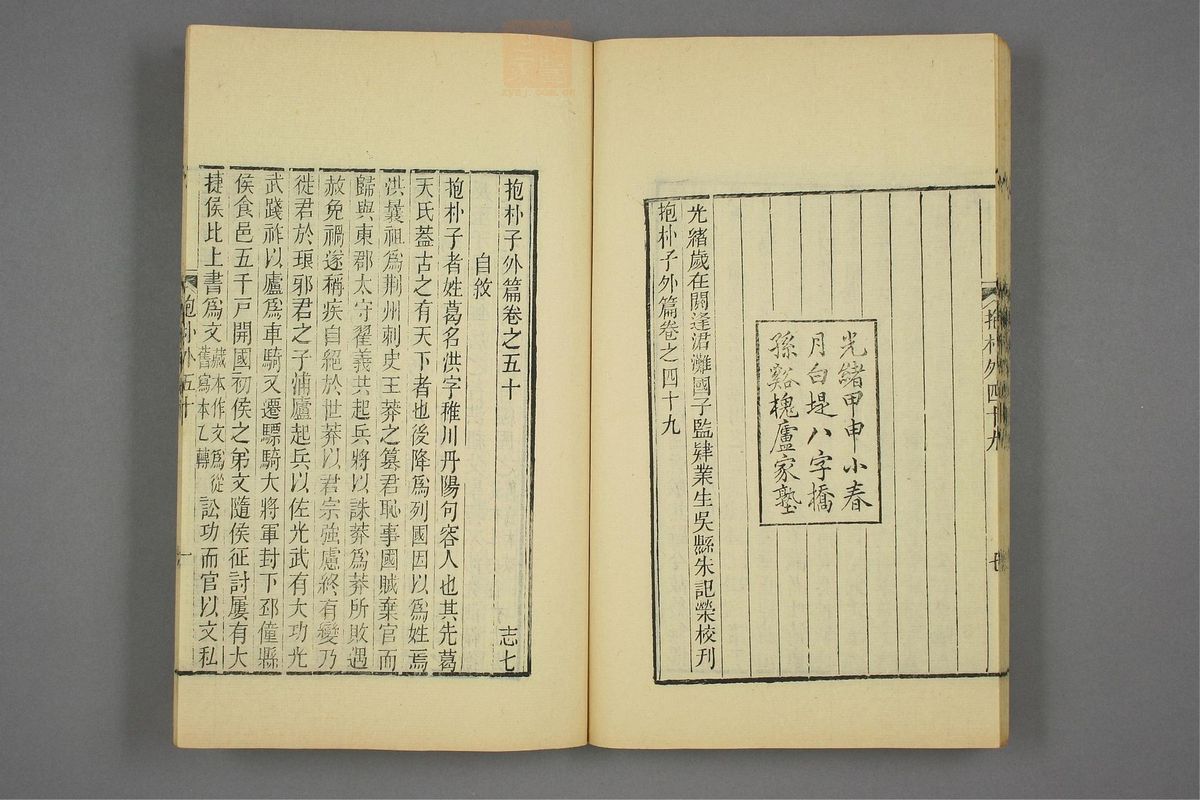 抱朴外四十九
七
光緒甲申小春
月白堤八字橋
孫谿槐廬家塾
光緒歲在閼逢涒灘國子監肄業生吳縣朱記榮校刊
抱朴子外篇卷之四十九
抱朴子外篇卷之五十
志七
自敘
抱朴子者姓葛名洪字稚川丹陽句容人也其先葛
天氏蓋古之有天下者也後降爲列國因以爲姓焉
洪曩祖爲荆州刺史王莽之篡君恥事國賊棄官而
歸與東郡太守翟義共起兵將以誅莽爲莽所敗遇
赦免禍遂稱疾自絕於世莽以君宗強慮終有變乃
徙君於琅邪君之子浦廬起兵以佐光武有大功光
武踐祚以廬爲車騎又遷驃騎大將軍封下邳僮縣
侯食邑五千戸開國初侯之弟文隨侯征討屢有大
捷侯比上書爲文
藏本作文爲從
舊寫本乙轉
訟功而官以文私
抱朴外五十
一